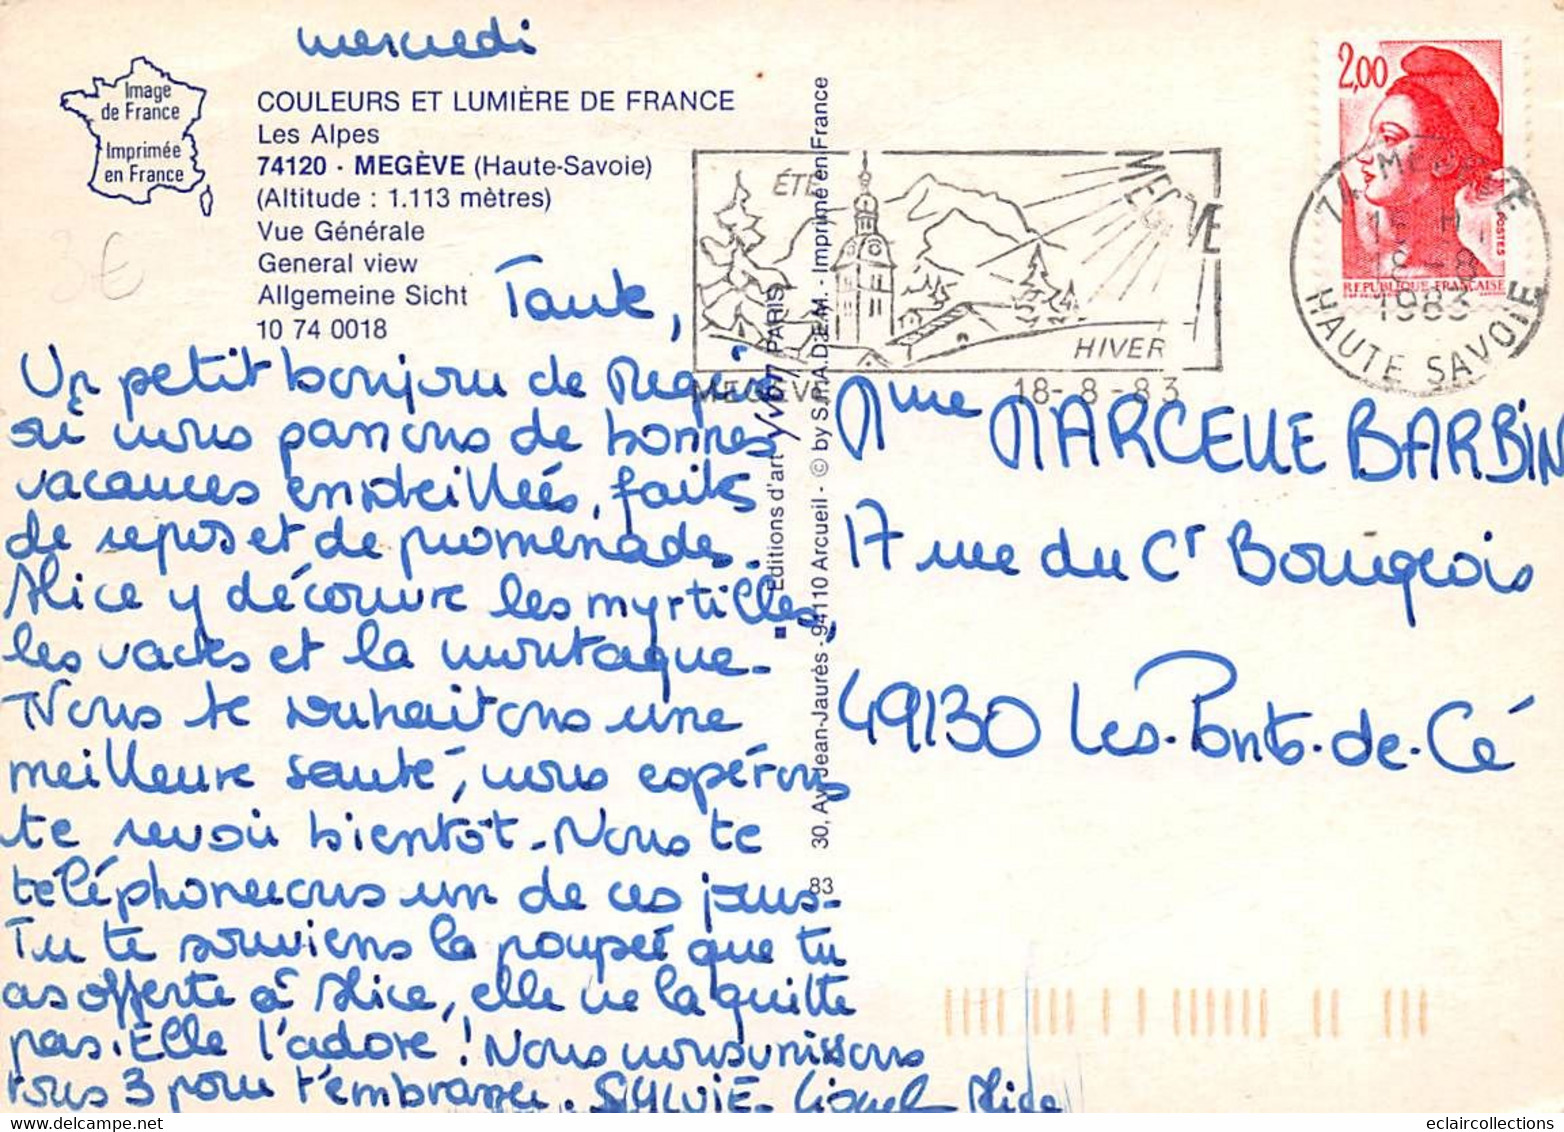 mercredi
Image
de France
Imprimée
en France
COULEURS ET LUMIÈRE DE FRANCE
Les Alpes
74120 - MEGÈVE (Haute-Savoie)
(Altitude : 1.113 mètres)
Vue Générale
General view
Allgemeine Sicht
10 74 0018
3€
Tante,
Un petit bonjour de Megève
où nous passons de bonnes
vacances ensoleillées, faites
de repos et de promenades.
Alice y découvre les myrtilles,
les vaches et la montagne.
Nous te souhaitons une
meilleure santé, nous espérons
te revoir bientôt. Nous te
téléphonerons un de ces jours.
Tu te souviens la poupée que tu
as offerte à Alice, elle ne la quitte
pas. Elle l'adore ! Nous nous unissons
tous 3 pour t'embrasser. SYLVIE - Lionel Alice
■ Editions d'art Yvon PARIS
30, Av. Jean-Jaurès - 94110 Arcueil - © by S.P.A.D.E.M. - Imprimé en France
83
ÉTÉ
MEGEVE
HIVER
MEGEVE 18-8-83
2,00
POSTES
REPUBLIQUE FRANÇAISE
74 MEGEVE
18-8
1983
HAUTE SAVOIE
Mme MARCELLE BARBIN
17 rue du Ct Bourgeois
49130 Les-Ponts-de-Cé
eclaircollections